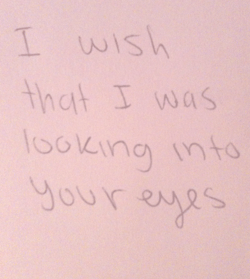 I wish
that I was
looking into
your eyes